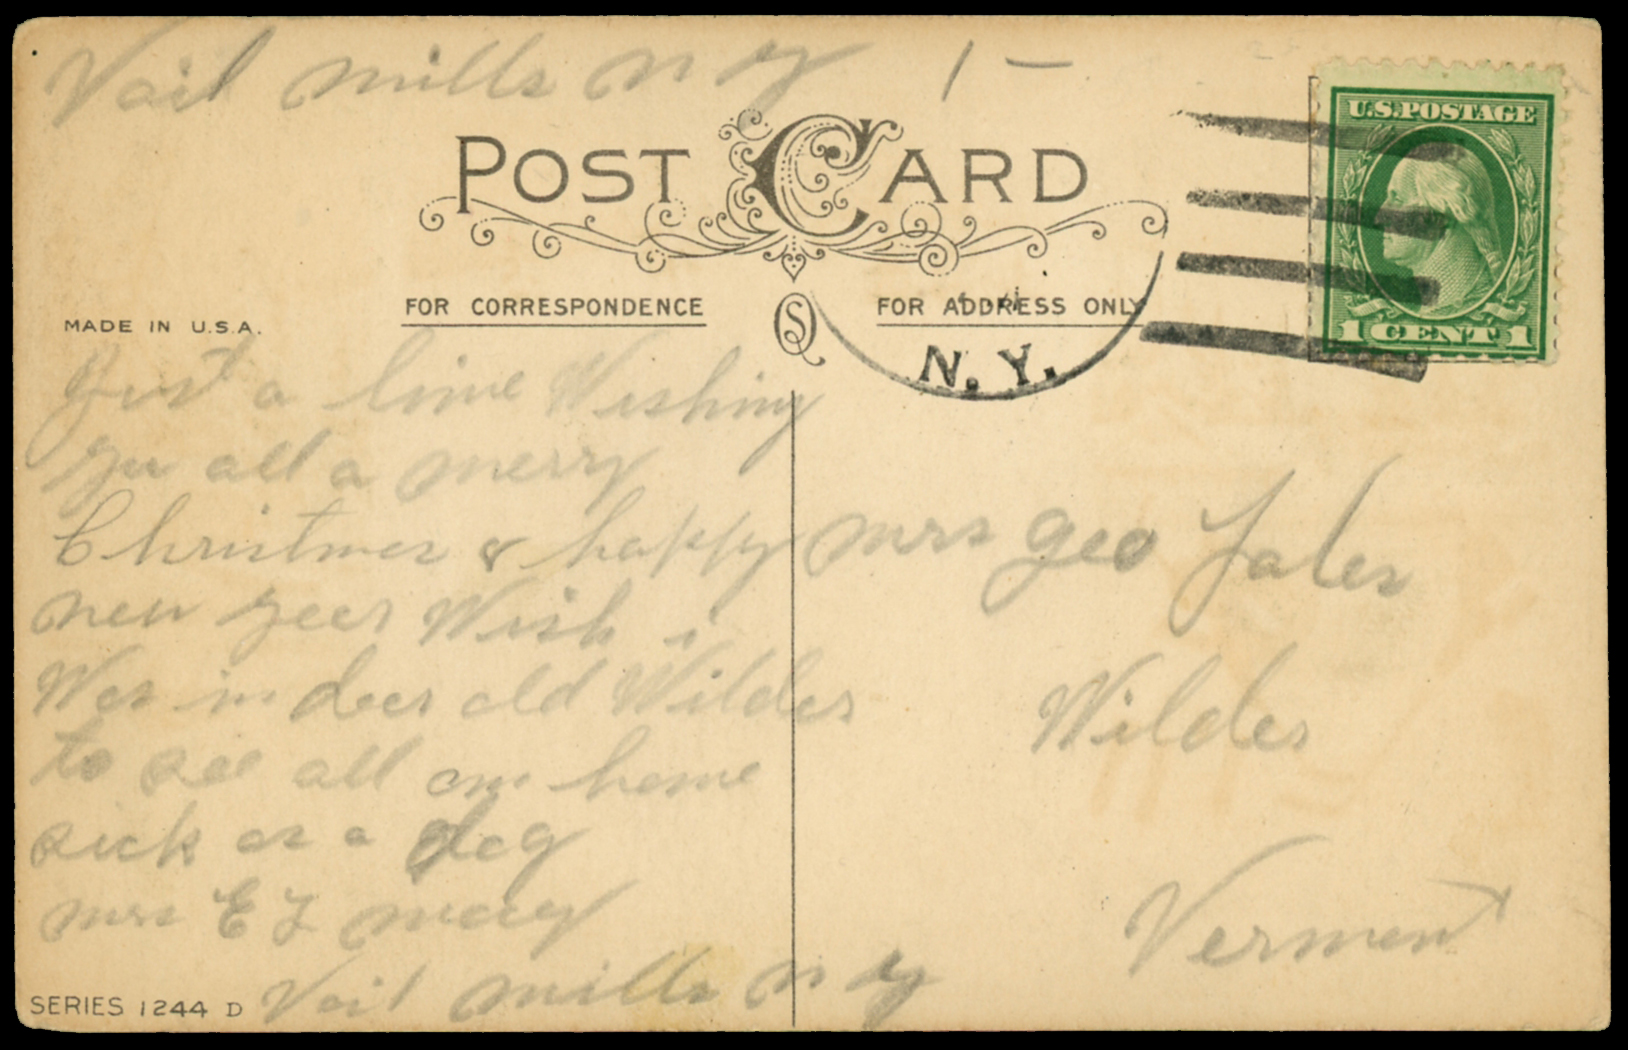 Vail mills n y 1 -
POST CARD
FOR CORRESPONDENCE
FOR ADDRESS ONLY
MADE IN U.S.A.
U.S. POSTAGE
1 CENT 1
N. Y.
Just a line Wishing
you all a merry
Christmas & happy
new year Wish i
Was in dear old Wilder
to see all am home
sick as a dog
mrs E L
Vail mills n y
mrs geo
Wilder
Vermont
SERIES 1244 D